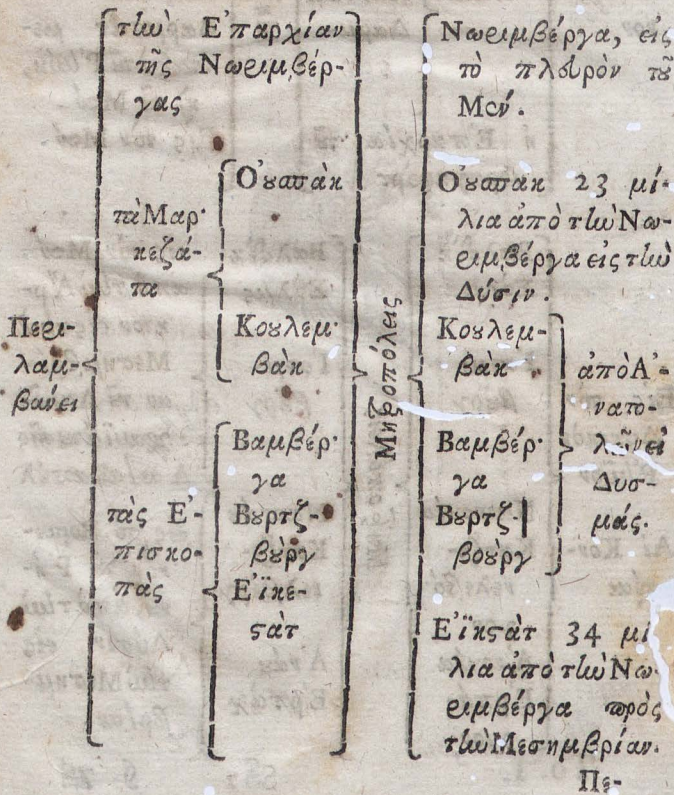 Περι-
λαμ-
βάνει
τὴν Ἐπαρχίαν
τῆς Νωριμβέρ-
γας
τὰ Μαρ-
κεζά-
τα
Ὀυασπὰκ
Κουλεμ-
βὰκ
τὰς Ἐ-
πισκο-
πὰς
Βαμβέρ-
γα
Βυρτζ-
βὺργ
Εἰκε-
ςὰτ
Μητροπόλεις
Νωριμβέργα, εἰς
τὸ πλευρὸν τοῦ
Μέν.
Ὀυασπὰκ 23 μί-
λια ἀπὸ τὴν Νω-
ριμβέργα εἰς τὴν
Δύσιν.
Κουλεμ-
βὰκ
Βαμβέρ-
γα
Βυρτζ-
βοὺργ
ἀπὸ Ἀ-
νατο-
λῶν εἰ
Δυσ-
μάς.
Ἐϊκςὰτ 34 μί
λια ἀπὸ τὴν Νω-
ριμβέργα πρὸς
τὴν Μεσημβρίαν.
Πε-